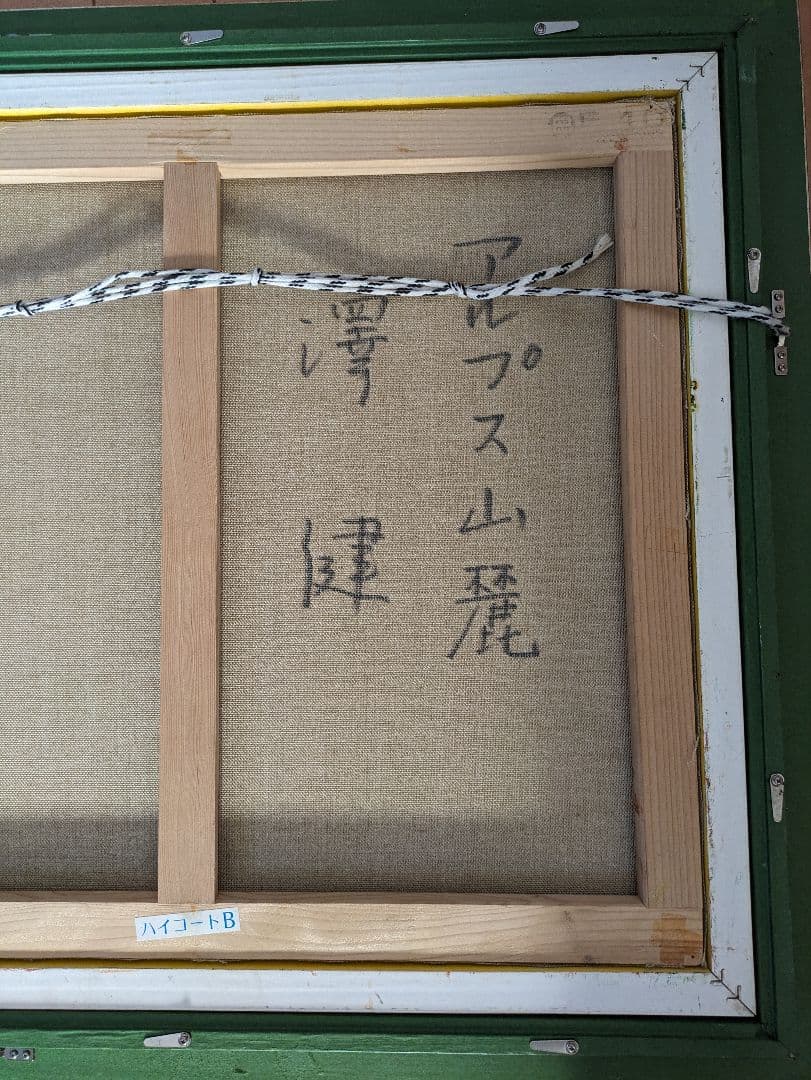 アルプス山麓
澤 健
ハイコートB